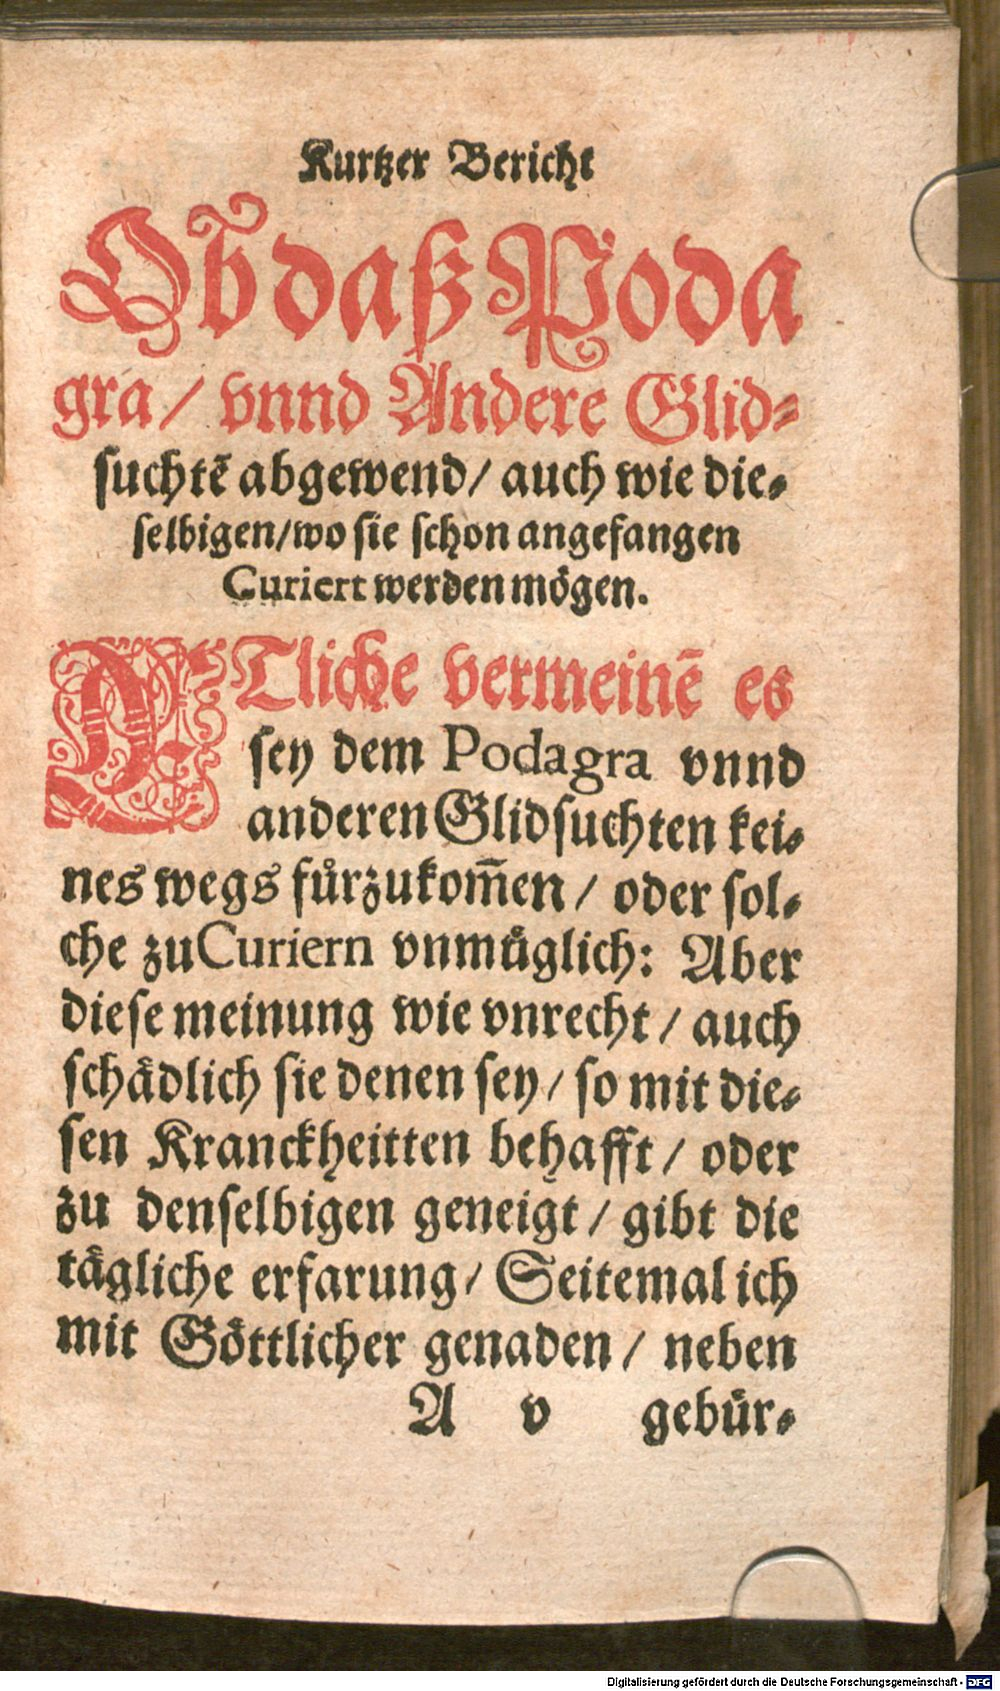 Kurtzer Bericht
Ob daß Poda
gra / vnnd Andere Glid-
suchtē abgewend / auch wie die-
selbigen / wo sie schon angefangen
Curiert werden mögen.
ETliche vermeinē es
sey dem Podagra vnnd
anderen Glidsuchten kei-
nes wegs fürzukom̃en / oder sol-
che zu Curiern vnmüglich: Aber
diese meinung wie vnrecht / auch
schädlich sie denen sey / so mit die-
sen Kranckheitten behafft / oder
zu denselbigen geneigt / gibt die
tägliche erfarung / Seitemal ich
mit Göttlicher genaden / neben
A v gebür-
Digitalisierung gefördert durch die Deutsche Forschungsgemeinschaft - DFG